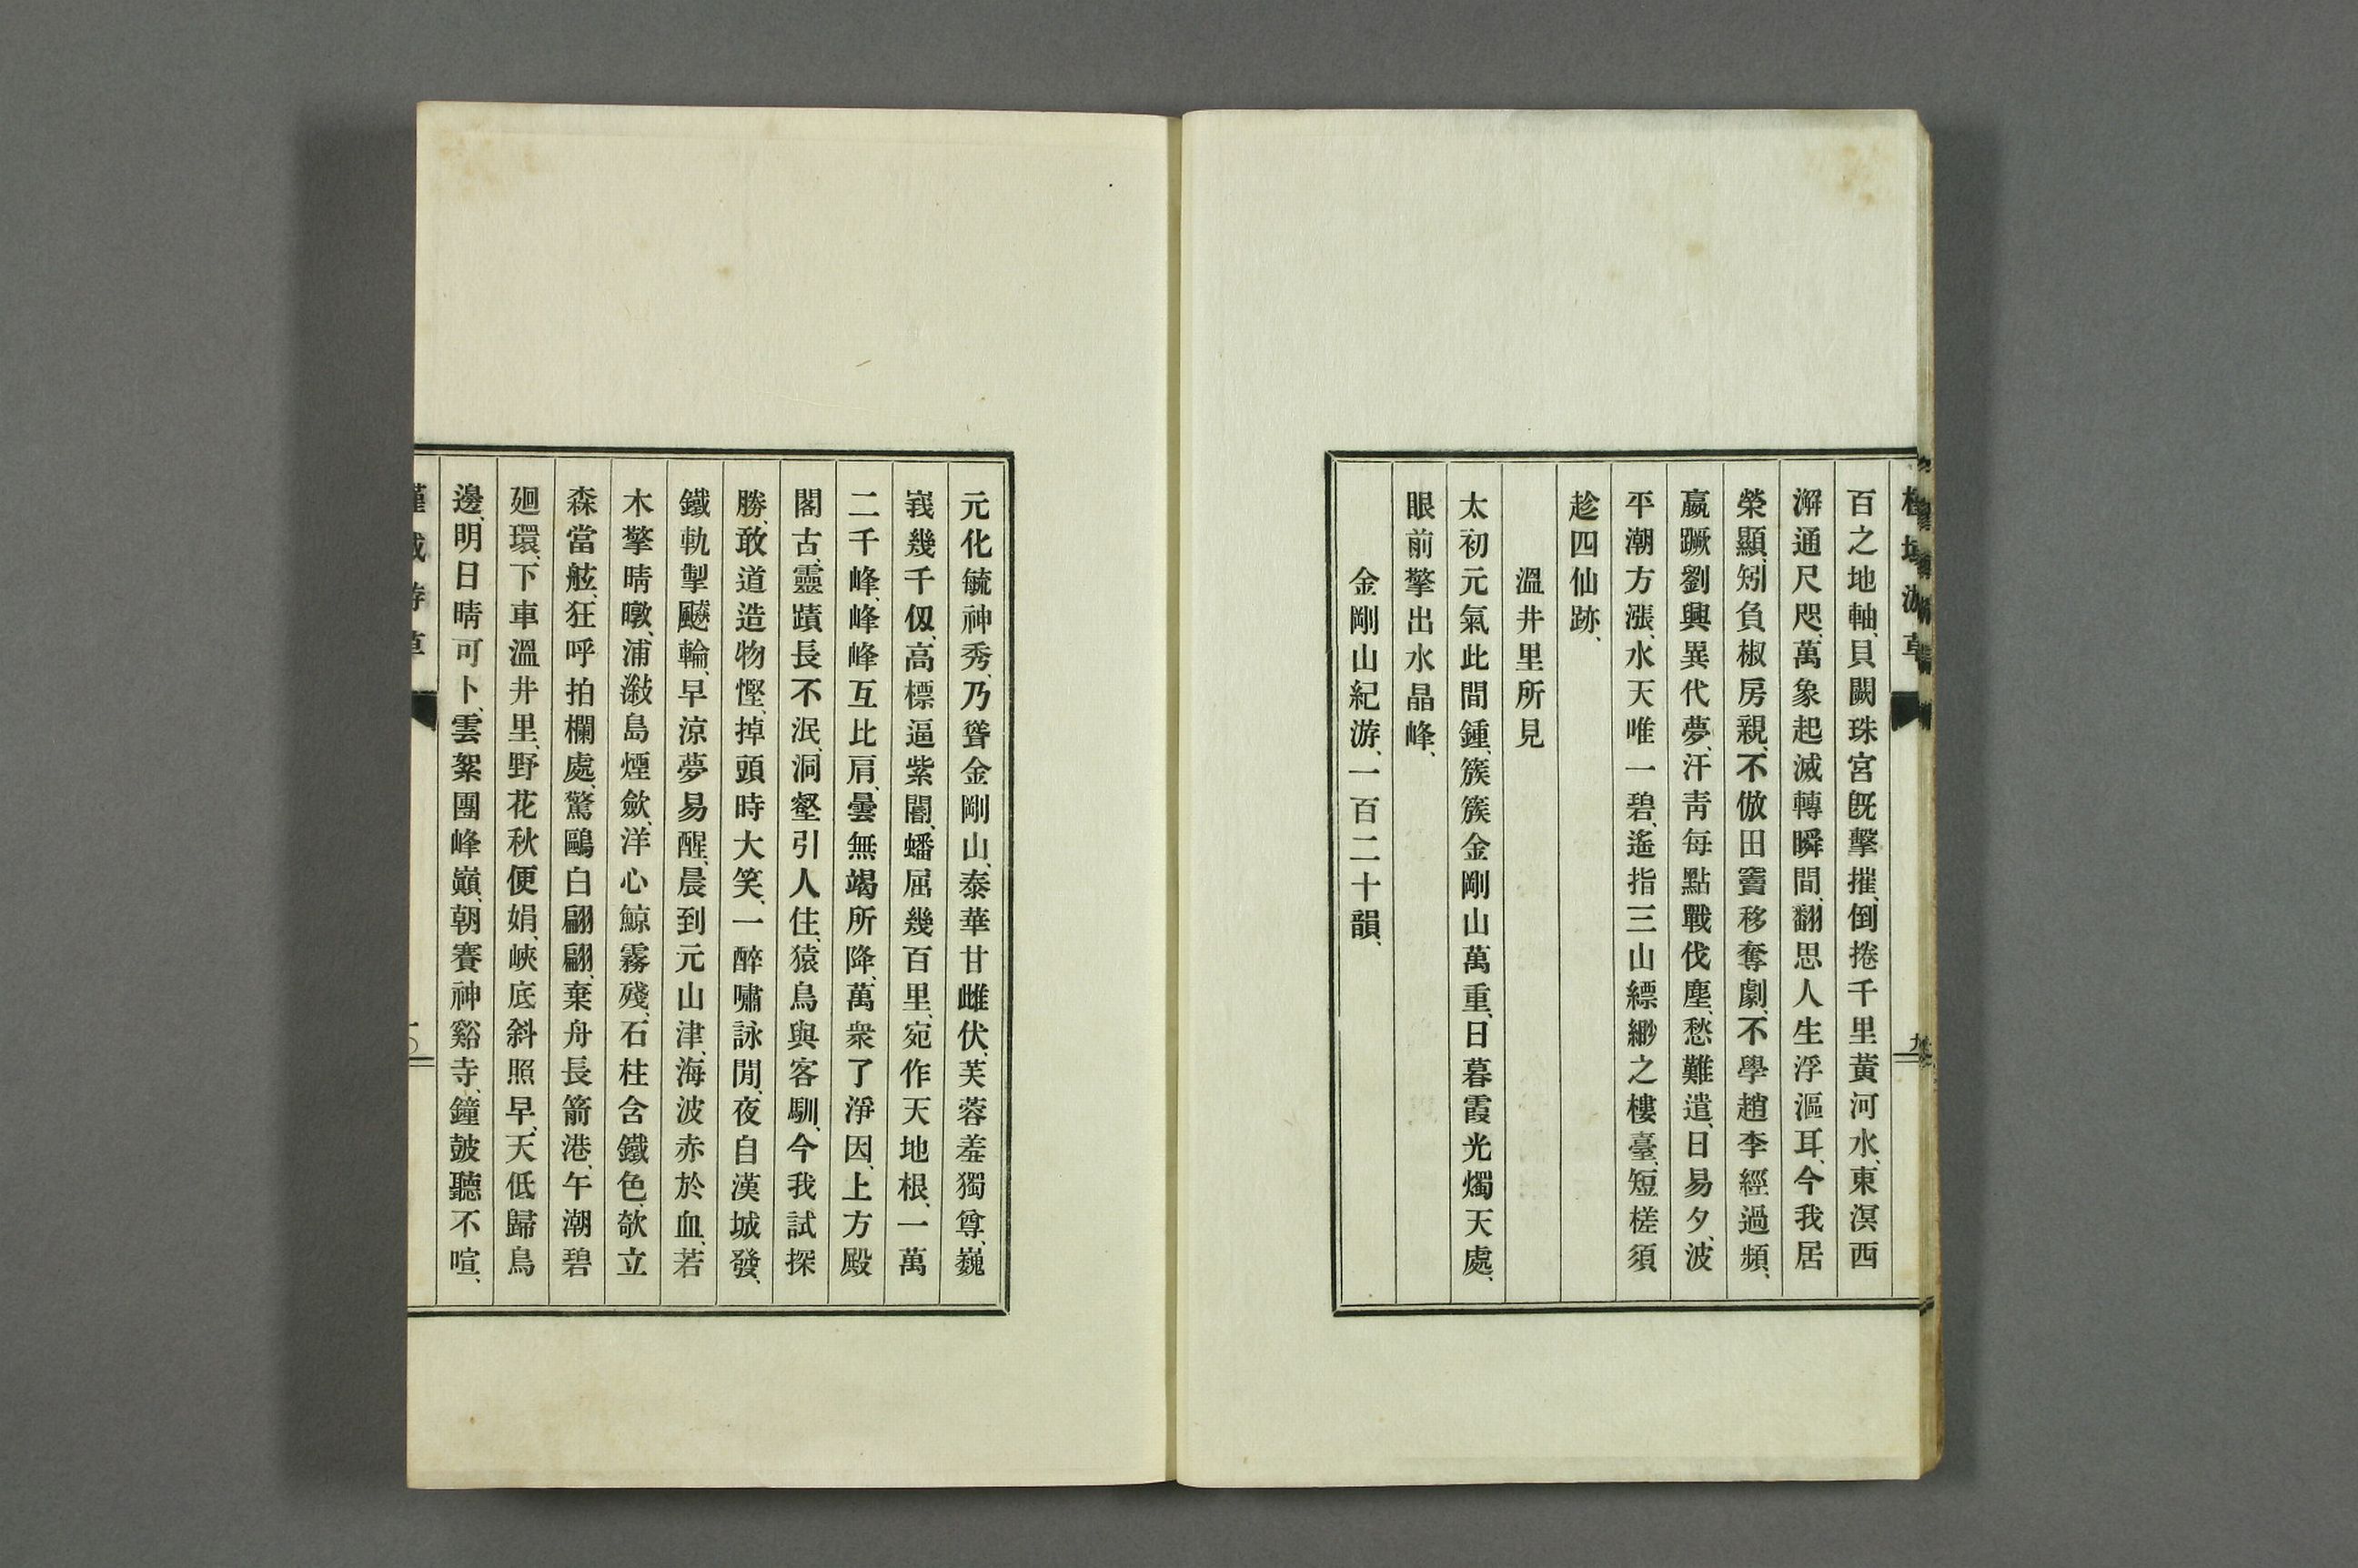 百之地軸、貝闕珠宮旣擊摧、倒捲千里黃河水、東溟西
澥通尺咫、萬象起滅轉瞬間、翻思人生浮漚耳、今我居
榮顯、矧負椒房親、不倣田竇移奪劇、不學趙李經過頻、
嬴蹶劉興異代夢、汗靑每點戰伐塵、愁難遣、日易夕、波
平潮方漲、水天唯一碧、遙指三山縹緲之樓臺、短槎須
趁四仙跡、
溫井里所見
太初元氣此間鍾、簇簇金剛山萬重、日暮霞光燭天處、
眼前擎出水晶峰、
金剛山紀游、一百二十韻、
元化毓神秀、乃聳金剛山、泰華甘雌伏、芙蓉羞獨尊、巍
峩幾千仭、高標逼紫閽、蟠屈幾百里、宛作天地根、一萬
二千峰、峰峰互比肩、曇無竭所降、萬衆了淨因、上方殿
閣古、靈蹟長不泯、洞壑引人住、猿鳥與客馴、今我試探
勝、敢道造物慳、掉頭時大笑、一醉嘯詠閒、夜自漢城發、
鐵軌掣颷輪、早涼夢易醒、晨到元山津、海波赤於血、若
木擎晴暾、浦溆島煙歛、洋心鯨霧殘、石柱含鐵色、欹立
森當舷、狂呼拍欄處、驚鷗白翩翩、棄舟長箭港、午潮碧
廻環、下車溫井里、野花秋便娟、峽底斜照早、天低歸鳥
邊、明日晴可卜、雲絮團峰巓、朝賽神谿寺、鐘皷聽不喧、
一〇